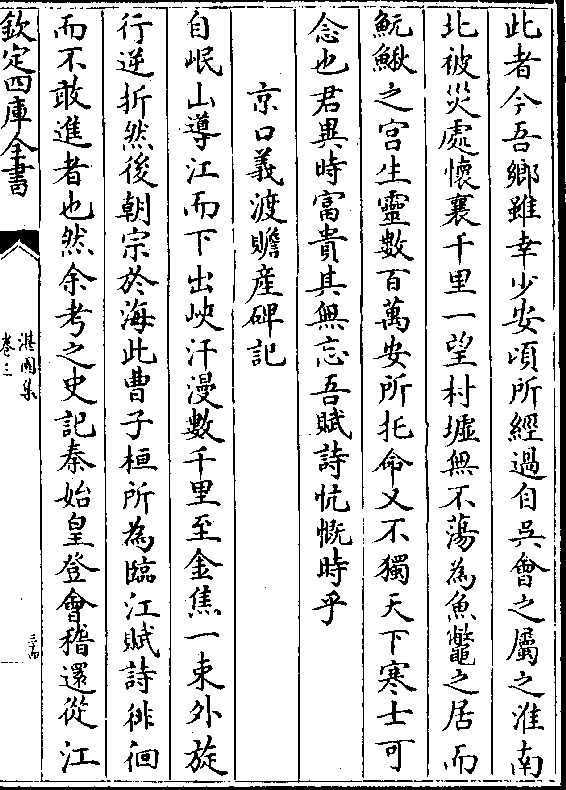 此者今吾鄉雖幸少安頃所經過自吳會之屬之淮南
北被災處懷襄千里一望村墟無不蕩為魚鼈之居而
魭鰍之宫生靈數百萬安所托命又不獨天下寒士可
念也君異時富貴其無忘吾賦詩忼慨時乎
京口義渡贍産碑記
自岷山導江而下出峽汗漫數千里至金焦一束外旋
行逆折然後朝宗於海此曹子桓所為臨江賦詩徘徊
而不敢進者也然余考之史記秦始皇登會稽還從江
欽定四庫全書
湛園集
卷三